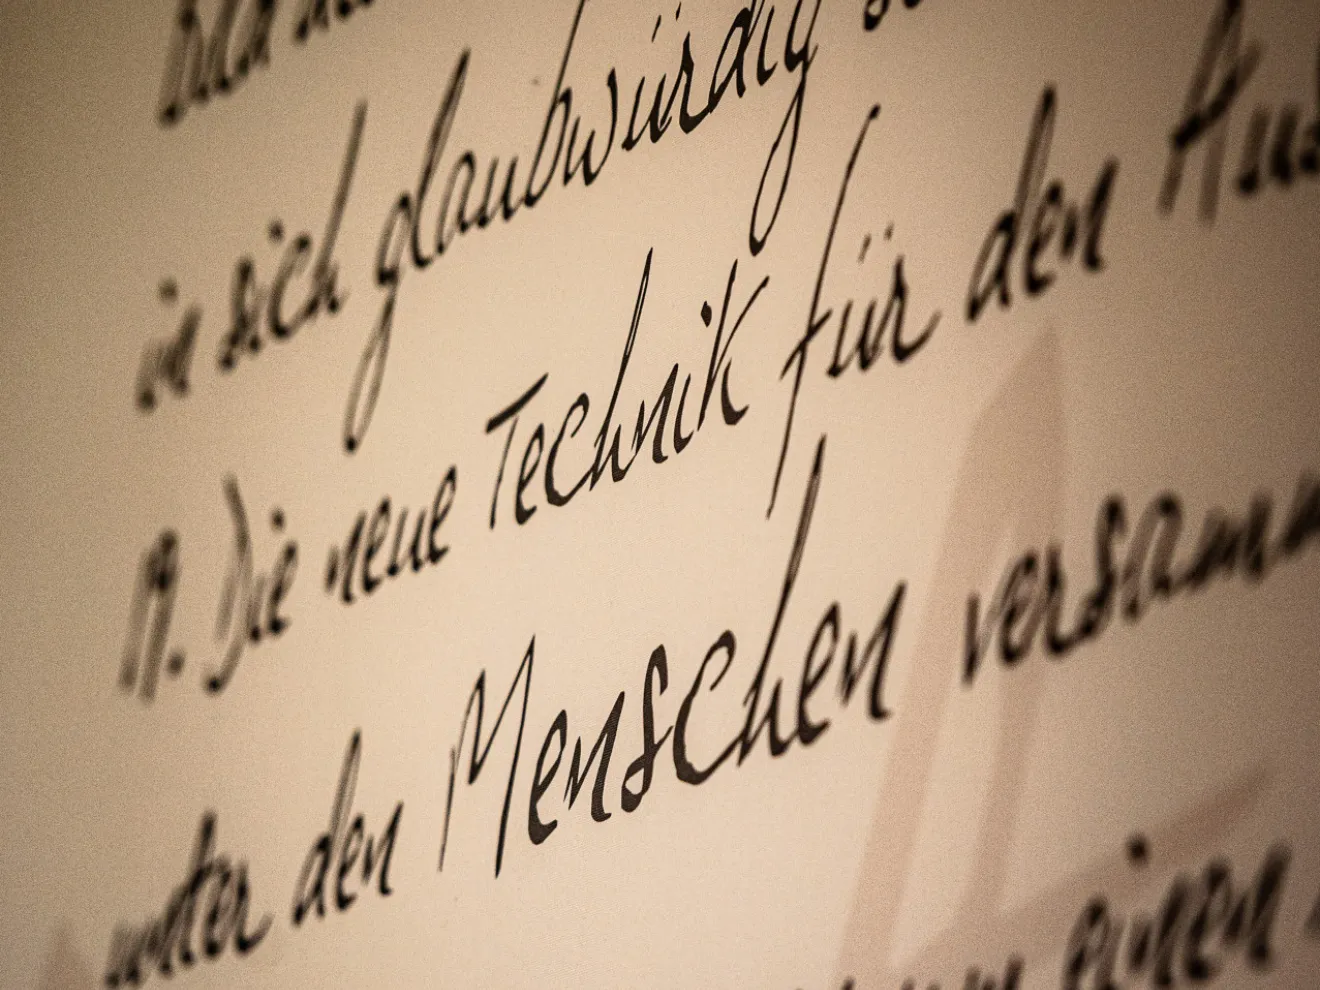 in sich glaubwürdig
Die neue Technik für den
unter den Menschen versamm
einen